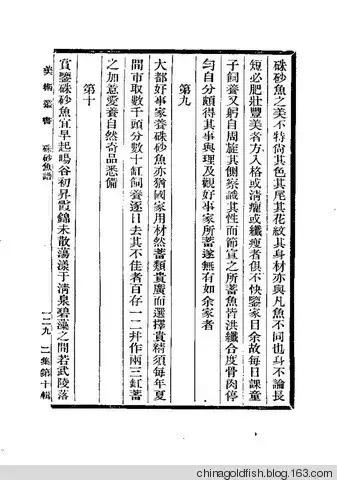 硃砂魚之美不特尚其色其尾其花紋其身材亦與凡魚不同也身不論長
短必肥壯豐美者方入格或清癯或纖瘦者俱不快鑒家目余故每日課童
子飼養又躬自周旋其側察識其性而節宣之所蓄魚皆洪纖合度骨肉停
勻自分頗得其事與理及觀好事家所蓄遂無有如余家者
第九
大都好事家養硃砂魚亦猶國家用材然蓄類貴廣而選擇貴精須每年夏
間市取數千頭分數十缸飼養逐日去其不佳者百存一二幷作兩三缸蓄
之加意愛養自然奇品悉備
第十
賞鑒硃砂魚宜早起暘谷初昇霞錦未散蕩漾于清泉碧藻之間若武陵落
美術叢書 硃砂魚譜 一二九 二集第十輯
chinagoldfish.blog.163.com